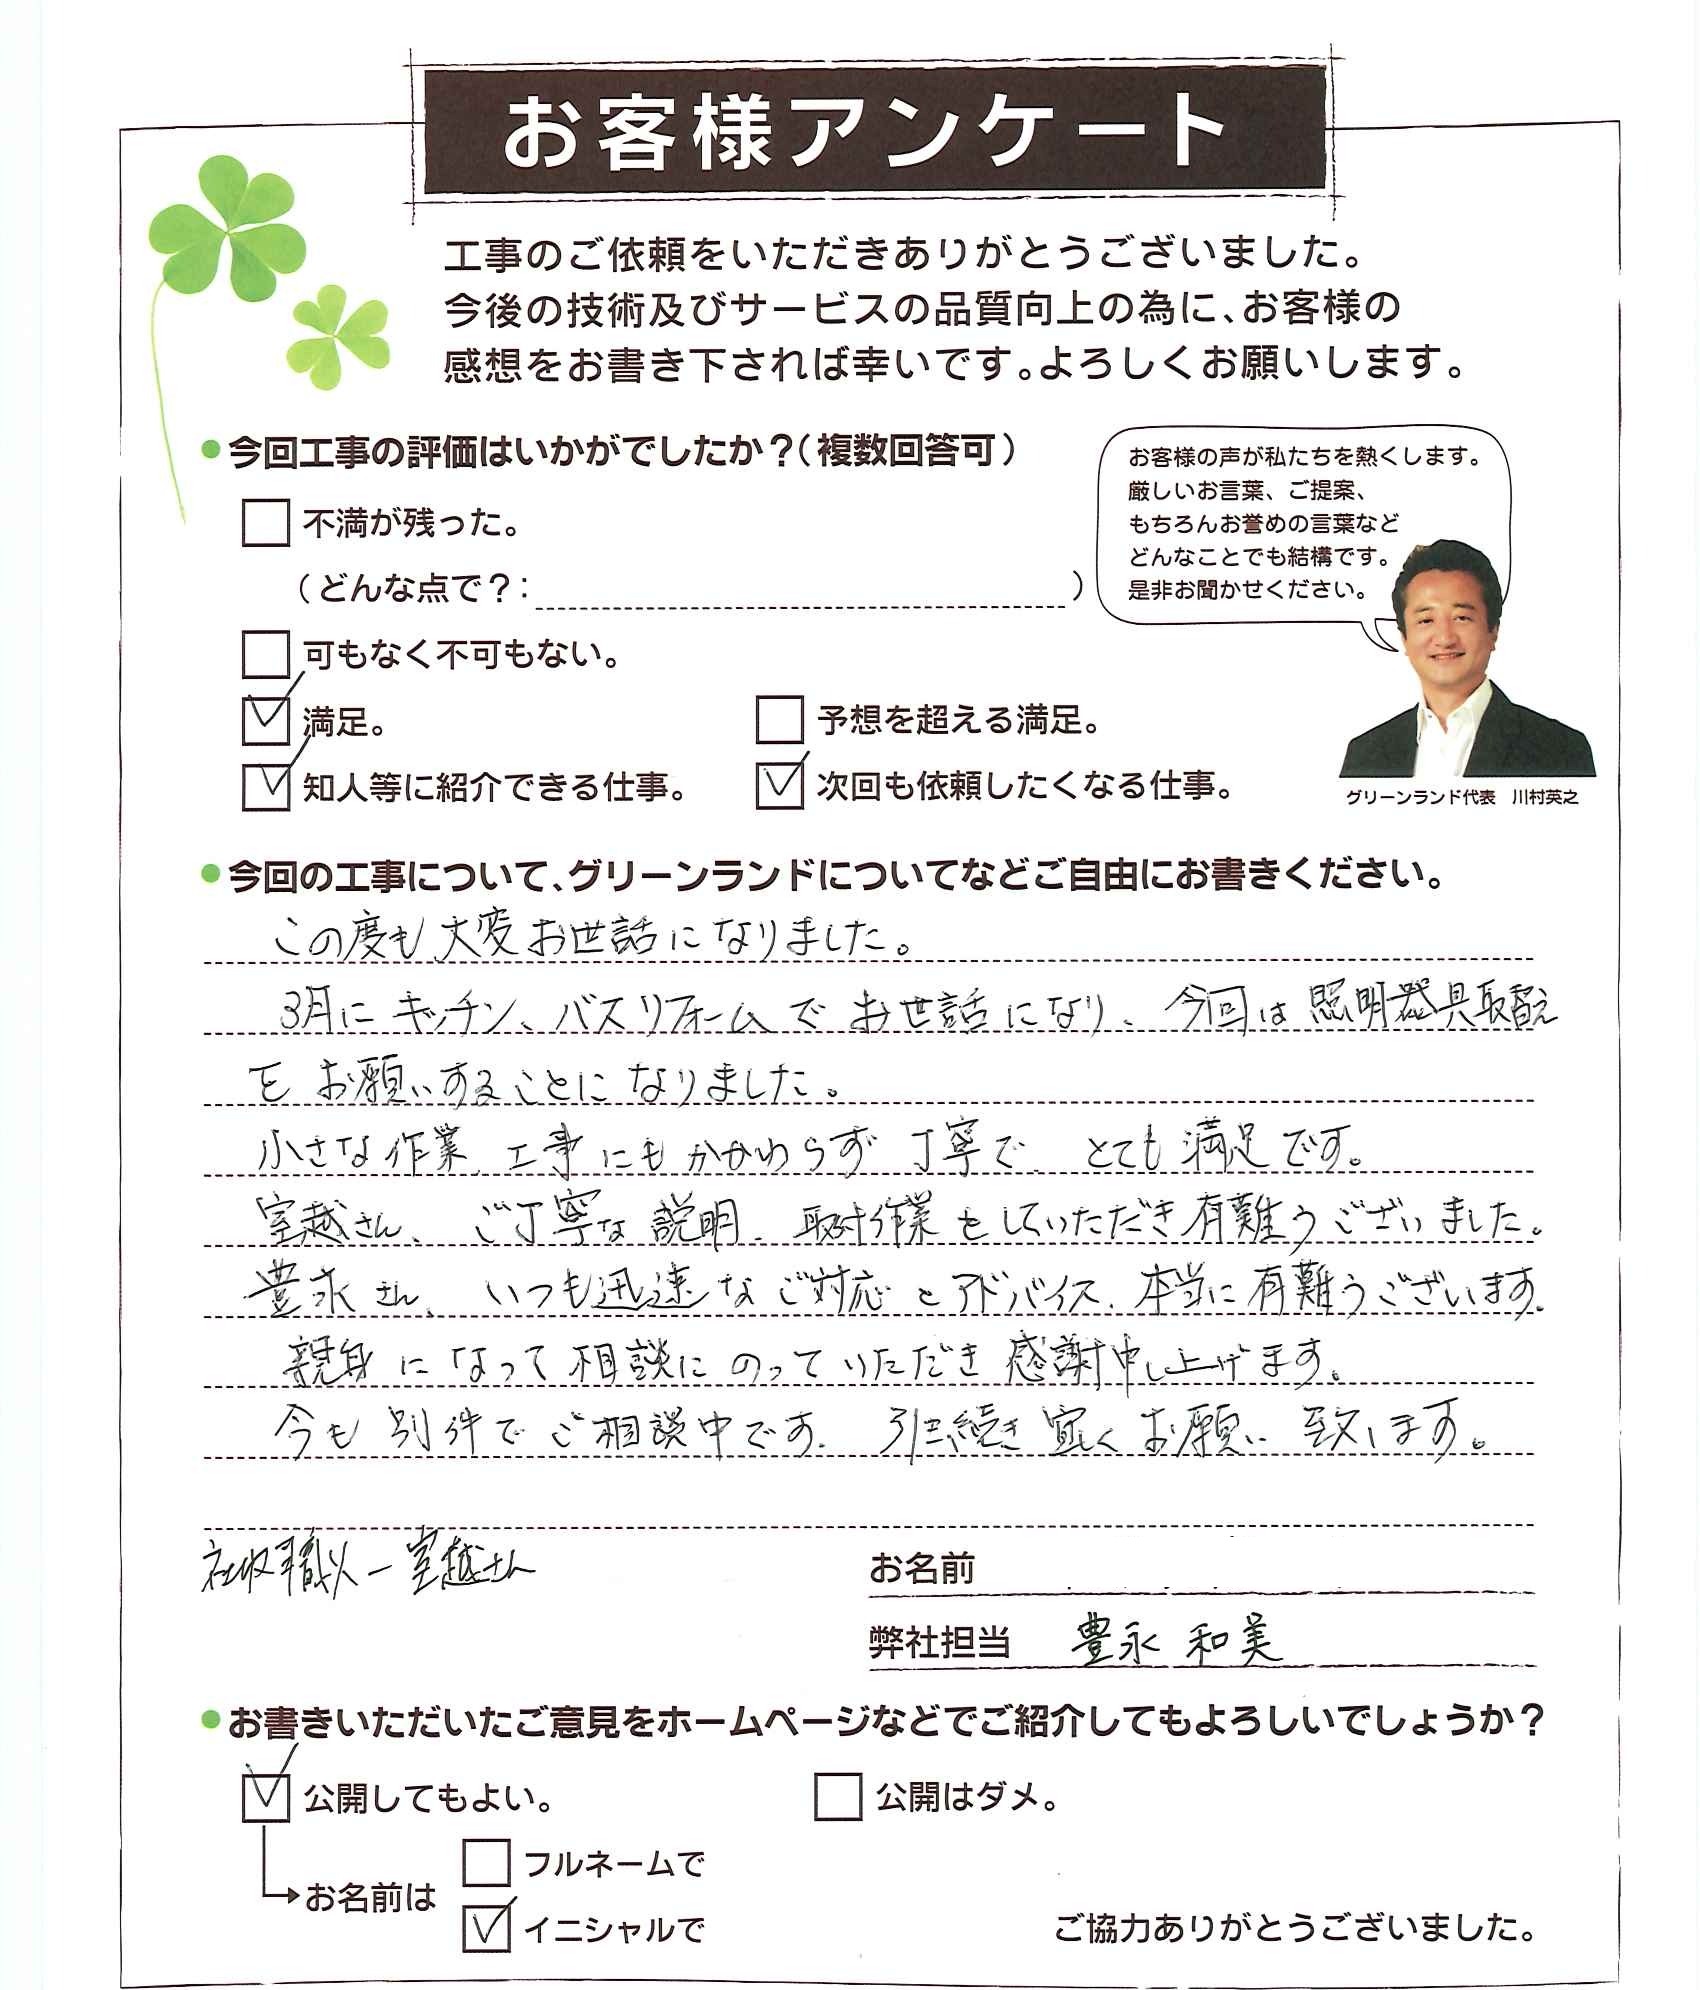 お客様アンケート
工事のご依頼をいただきありがとうございました。
今後の技術及びサービスの品質向上の為に、お客様の
感想をお書き下されば幸いです。よろしくお願いします。
●今回工事の評価はいかがでしたか？（複数回答可）
不満が残った。
（どんな点で？：　　　）
可もなく不可もない。
満足。
予想を超える満足。
知人等に紹介できる仕事。
次回も依頼したくなる仕事。
お客様の声が私たちを熱くします。
厳しいお言葉、ご提案、
もちろんお誉めの言葉など
どんなことでも結構です。
是非お聞かせください。
グリーンランド代表　川村英之
●今回の工事について、グリーンランドについてなどご自由にお書きください。
この度も大変お世話になりました。
3月にキッチン、バスリフォームでお世話になり、今回は照明器具取替え
をお願いすることになりました。
小さな作業、工事にもかかわらず丁寧で、とても満足です。
室越さん、ご丁寧な説明、取付作業をしていただき有難うございました。
豊永さん、いつも迅速なご対応とアドバイス、本当に有難うございます。
親身になって相談にのっていただき感謝申し上げます。
今も別件でご相談中です。引き続き宜しくお願い致します。
職人ー室越さん
お名前
弊社担当　豊永 和美
●お書きいただいたご意見をホームページなどでご紹介してもよろしいでしょうか？
公開してもよい。
公開はダメ。
お名前は
フルネームで
イニシャルで
ご協力ありがとうございました。